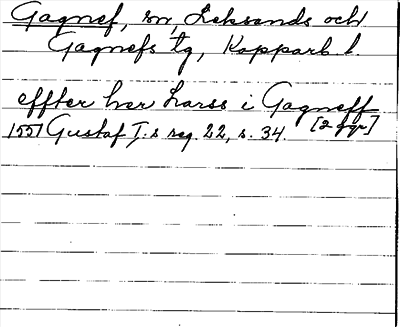 Gagnef, sn, Leksands och
Gagnefs tg, Kopparb. l.
effter her Larss i Gagneff
1551 Gustaf I:s reg. 22, s. 34. [2 ggr]